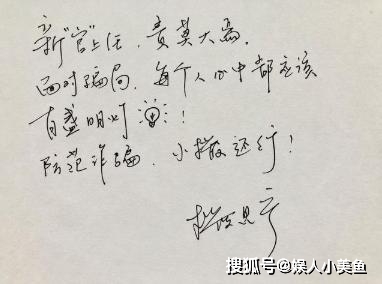 新“官”上任，责莫大焉，
面对骗局，每个人心中都应该
有盏明灯！
防范诈骗，小撒还行！
撒贝宁
搜狐号@娱人小美鱼